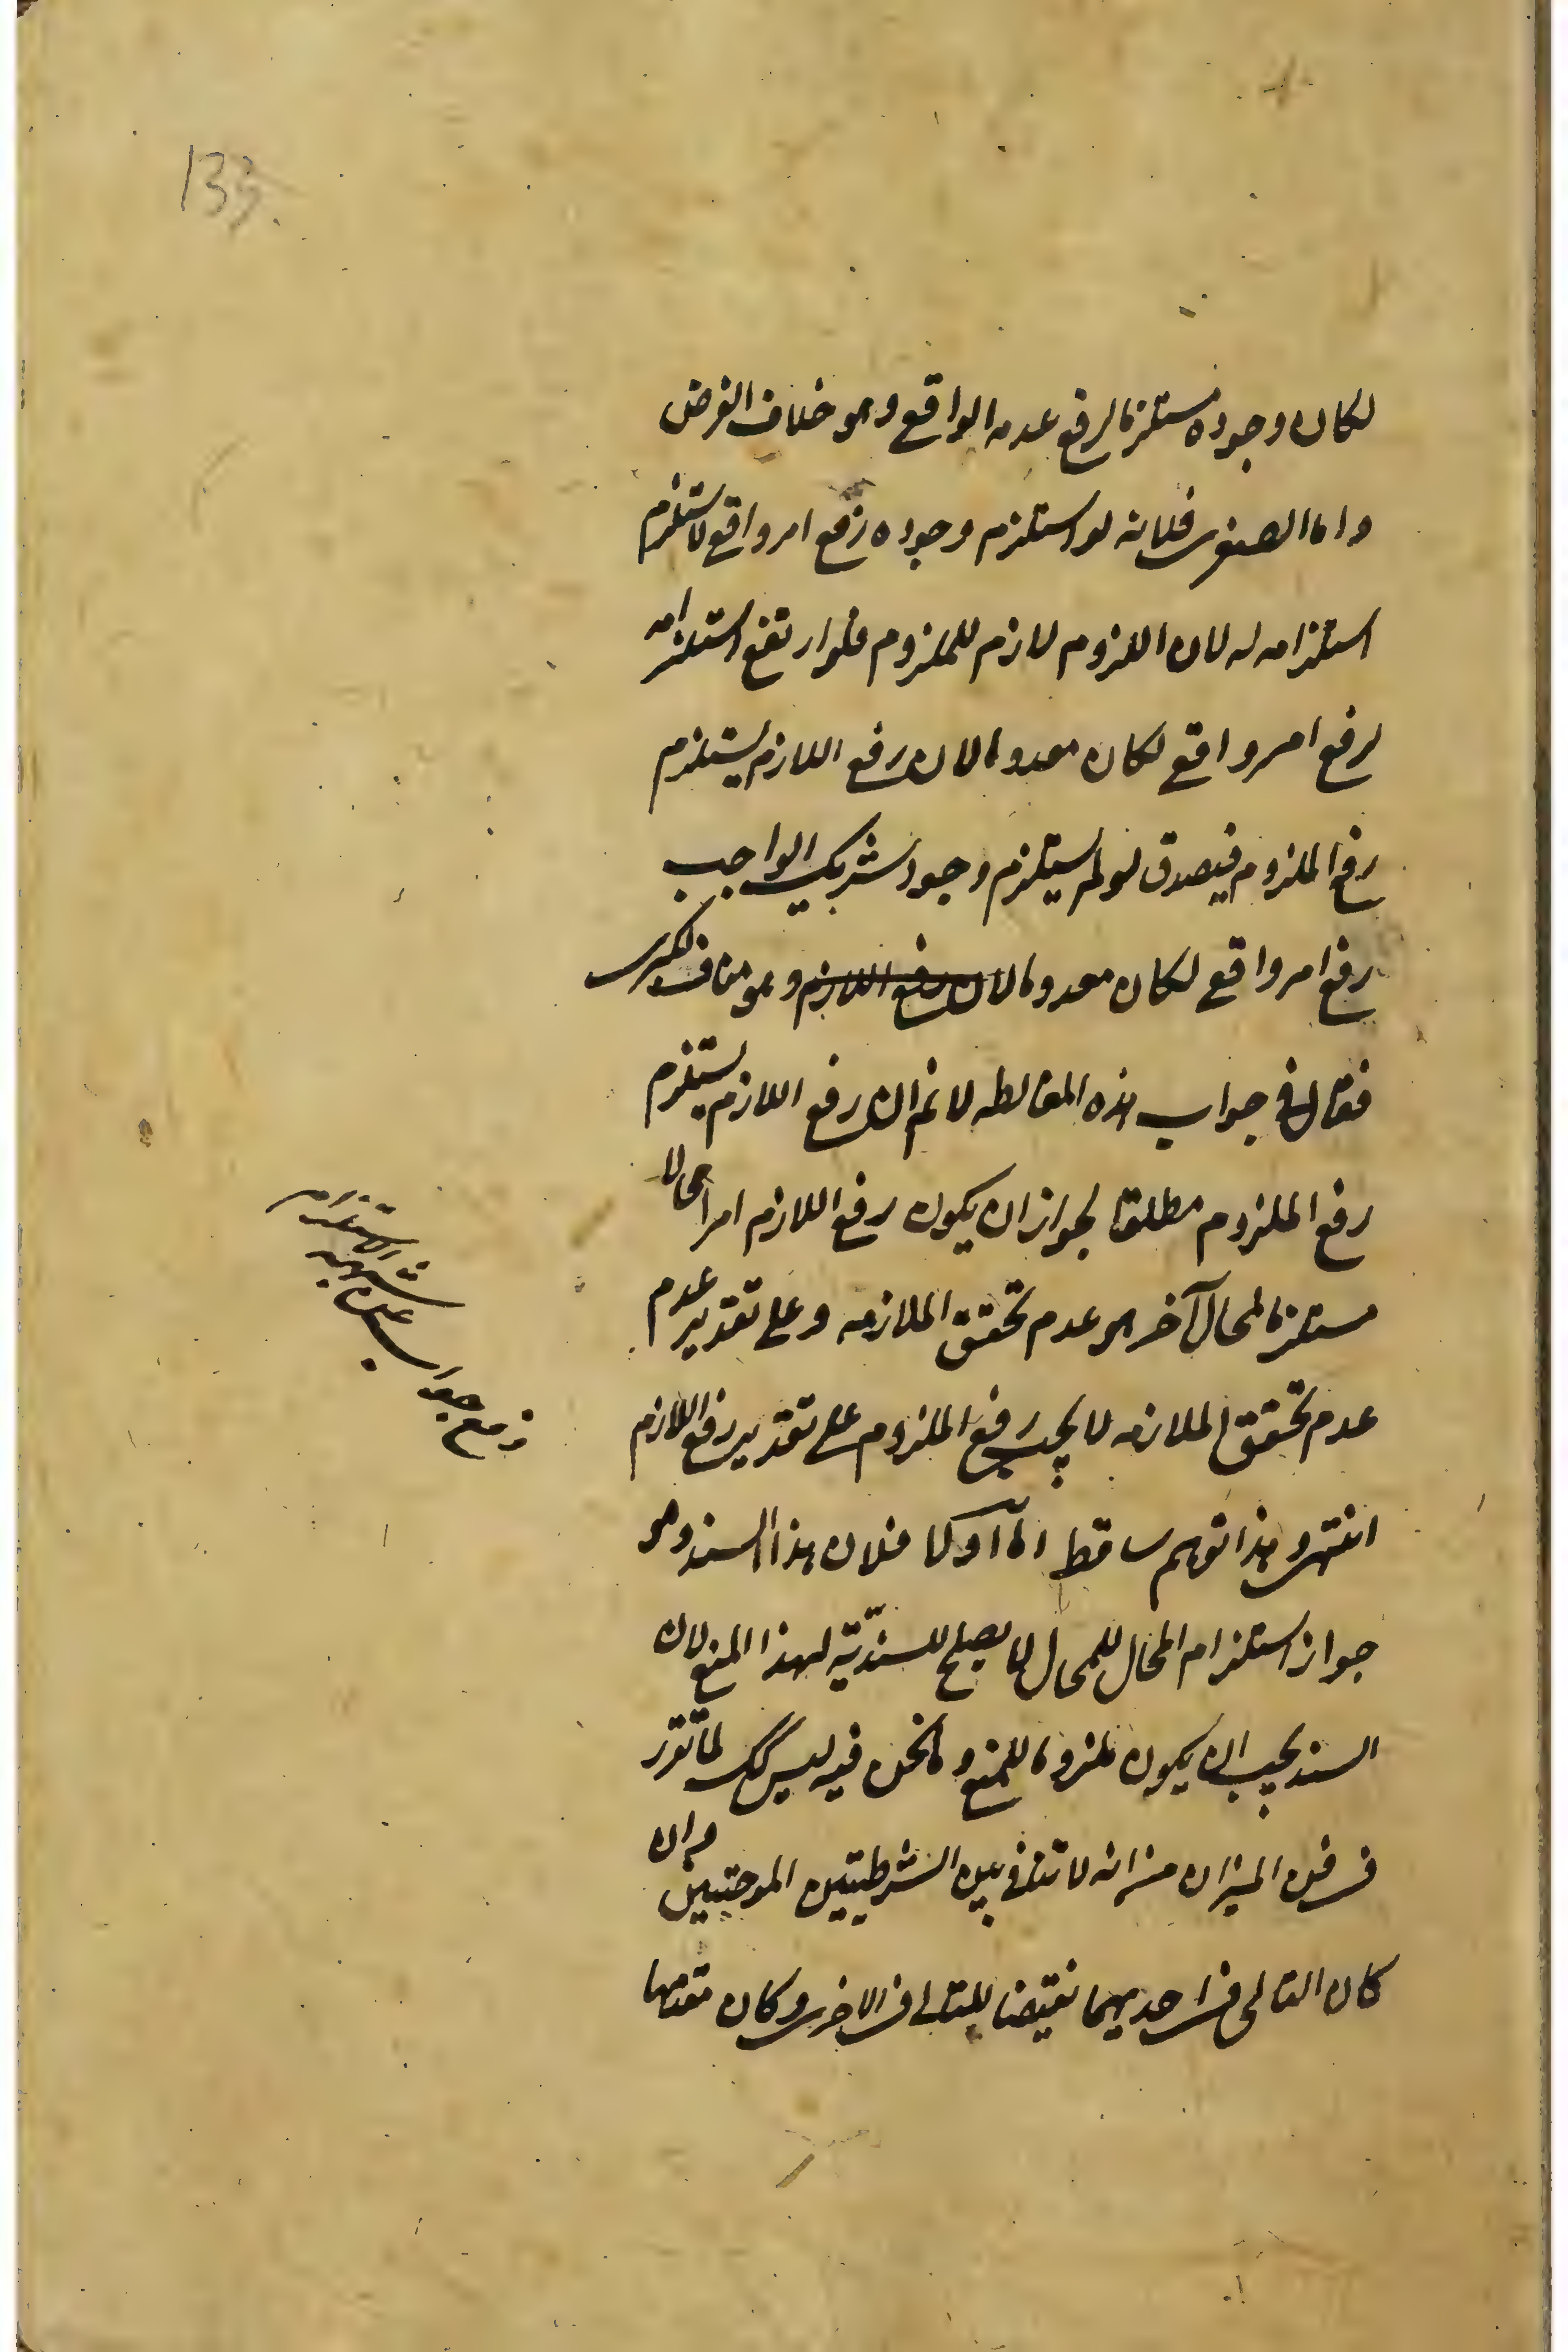 133
لكان وجوده مستلزما لرفع عدمه الواقع وهو خلاف الفرض
واما الصغرى فلانه لو استلزم وجوده رفع امر واقع لاستلزم
استلزامه له لان اللزوم لازم للملزوم فلو ارتفع استلزامه
لرفع امر واقع لكان معدوما لان رفع اللازم يستلزم
رفع الملزوم فيصدق لو لم يستلزم وجود شريك الواجب
رفع امر واقع لكان معدوما لان رفع اللازم وهو مناف لكبرى
فقال في جواب هذه المغالطه لا نم ان رفع اللازم يستلزم
رفع الملزوم مطلقا لجواز ان يكون رفع اللازم امرا محالا
مستلزما لمحال آخر هو عدم تحقق الملازمه وعلى تقدير عدم
عدم تحقق الملازمه لا يجب رفع الملزوم على تقدير رفع اللازم
انتهى وهذا توهم ساقط اما اولا فلان هذا السند وهو
جواز استلزام المحال للمحال لا يصلح للسندية لهذا المنع لان
السند يجب ان يكون ملزوما للمنع وما نحن فيه ليس كك لما تقرر
في فن الميزان من انه لا تنافى بين الشرطيتين الموجبتين وان
كان التالى في احديهما نقيضا للتالى في الاخرى وكان مقدمها
جواب عن شبهة الاستلزام